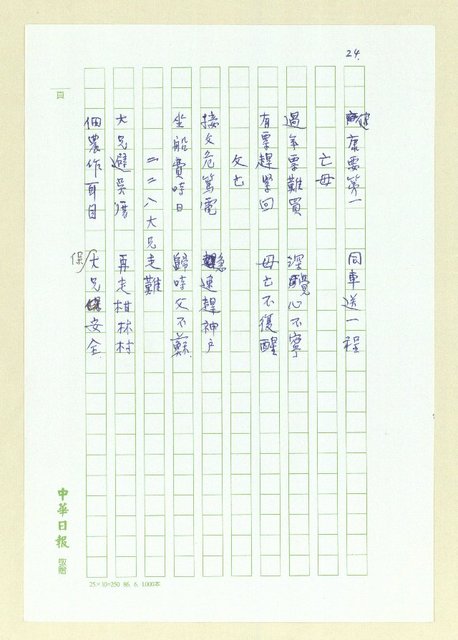 24.
健康要第一 同車送一程
亡母
過年票難買 深覺心不寧
有票趕緊回 母亡不復醒
父亡
接父危篤電 急速趕神戶
坐船費時日 歸時父不蘇
二二八大兄走難
大兄避吳厝 再走柑林村
佃農作耳目 保大兄安全
中華日報
25×10=250 86. 6. 1000本